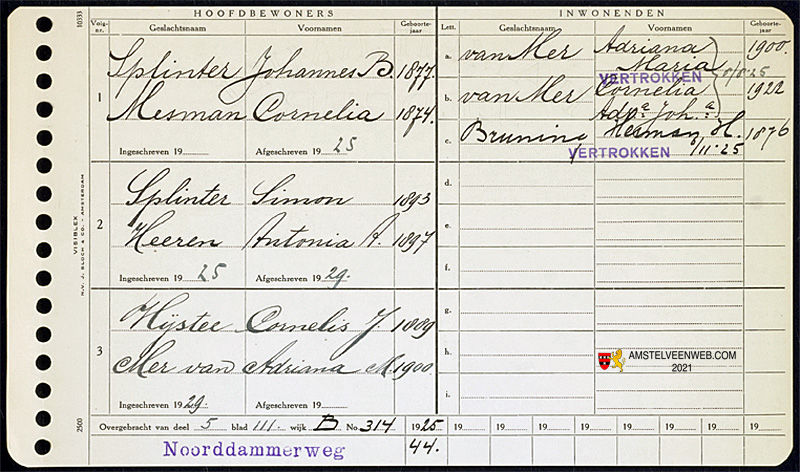 HOOFDBEWONERS
INWONENDEN
Volg-nr. Geslachtsnaam Voornamen Geboorte-jaar
Lett. Geslachtsnaam Voornamen Geboorte-jaar
1
Splinter Johannes B. 1877.
Mesman Cornelia 1874.
Ingeschreven 19 Afgeschreven 19 25
2
Splinter Simon 1893
Heeren Antonia A. 1897
Ingeschreven 19 25 Afgeschreven 19 29.
3
Cornelis J. 1889
Mer van Adriana M 1900.
Ingeschreven 19 29. Afgeschreven 19
a. van Mer Adriana 1900.
Maria
VERTROKKEN
b. van Mer Cornelia 1922
Joh.a
c. Bruning Herman H. 1876
VERTROKKEN 11-25
d.
e.
f.
g.
h.
i.
AMSTELVEENWEB.COM
2021
Overgebracht van deel 5 blad 111. wijk B No 314 1925 19 19 19 19 19 19 19 19
Noorddammerweg 44.
10333
VISIBLEX
N.V. J. BLOCH & CO. - AMSTERDAM
2500